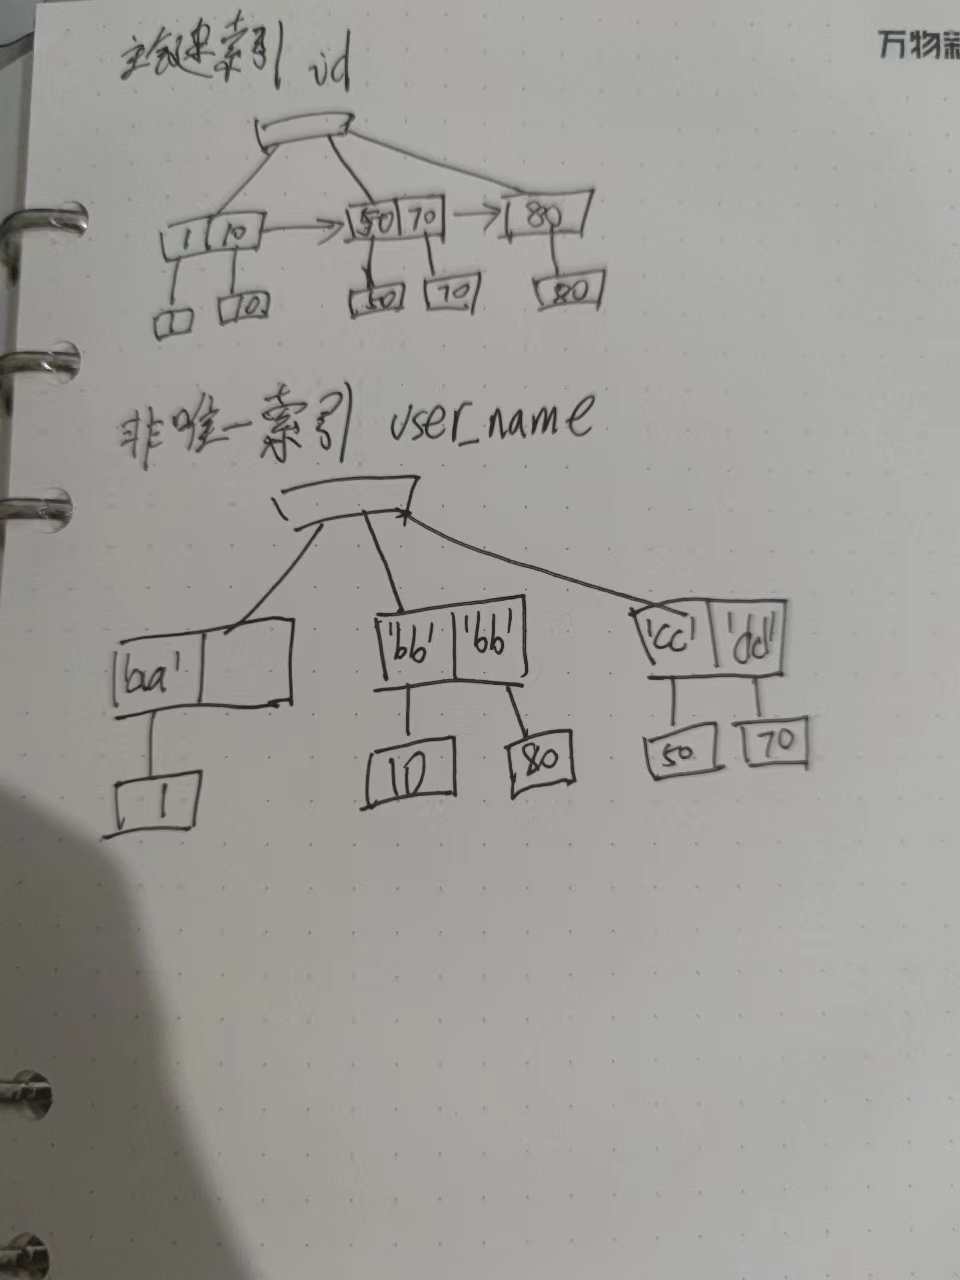 万物
主键索引 id
1 10 50 70 80
1 10 50 70 80
非唯一索引 user_name
'aa' 'bb' 'bb' 'cc' 'dd'
1 10 80 50 70